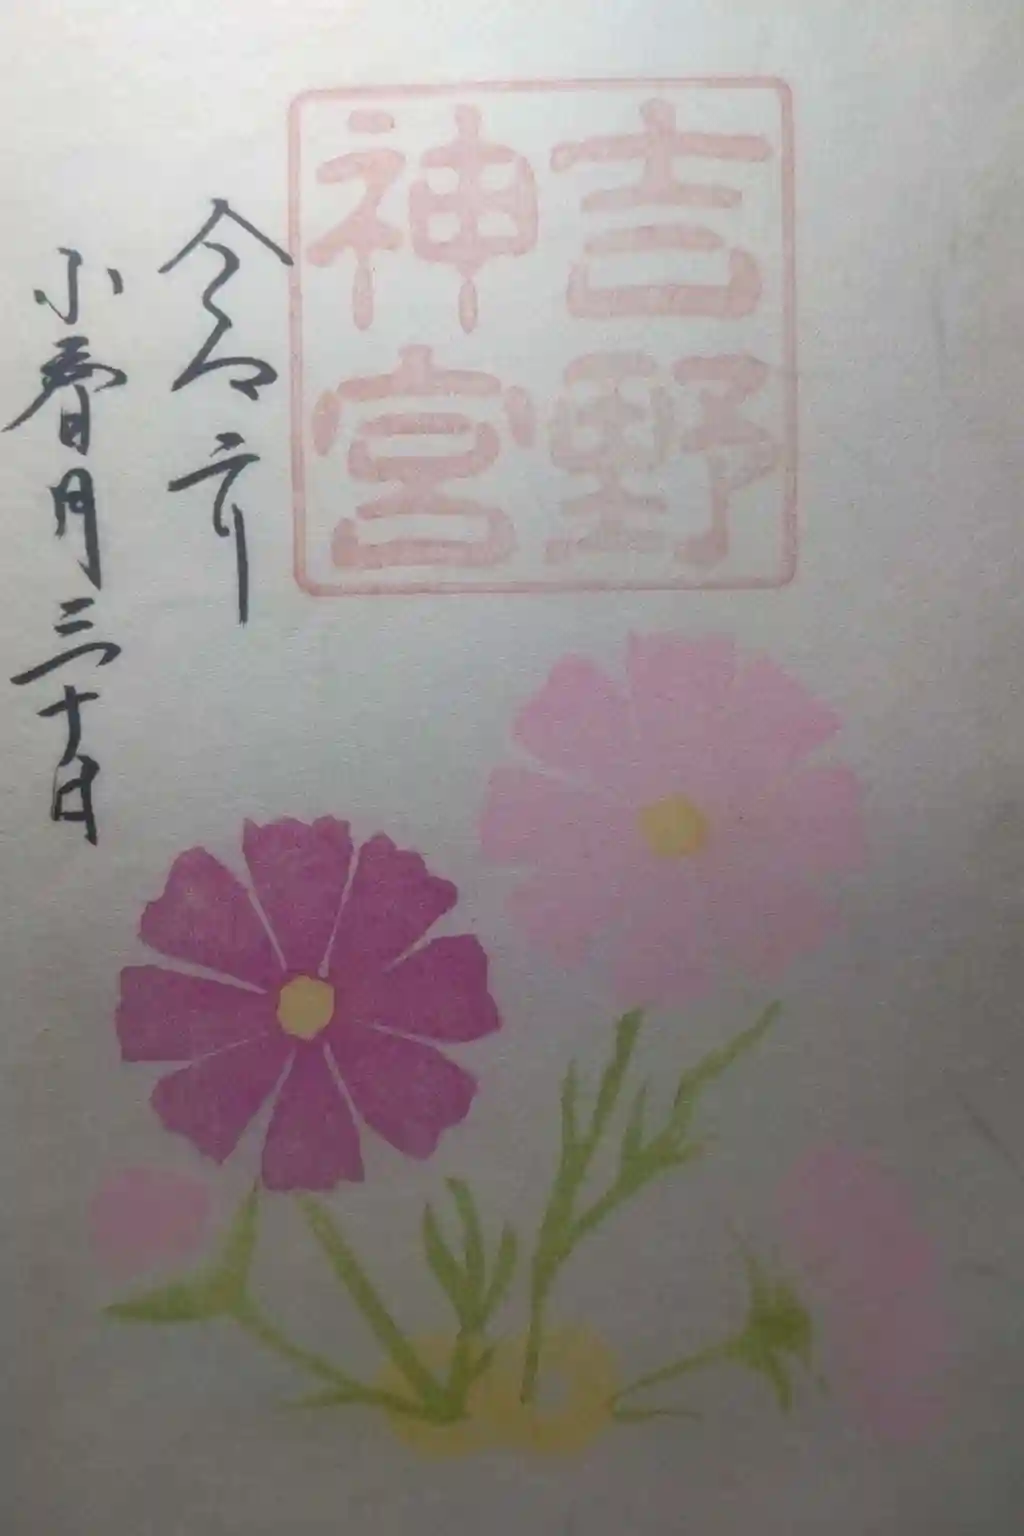 吉野
神宮
令和二年
小春月三十日